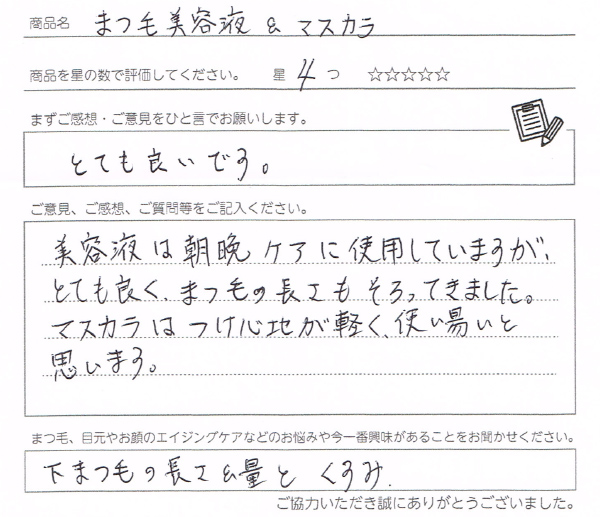 商品名 まつ毛美容液 & マスカラ
商品を星の数で評価してください。 星 4 つ ☆☆☆☆☆
まずご感想・ご意見をひと言でお願いします。
とても良いです。
ご意見、ご感想、ご質問等をご記入ください。
美容液は朝晩ケアに使用していますが、
とても良く、まつ毛の長さもそろってきました。
マスカラはつけ心地が軽く、使い易いと
思います。
まつ毛、目元やお顔のエイジングケアなどのお悩みや今一番興味があることをお聞かせください。
下まつ毛の長さ&量と くすみ.
ご協力いただき誠にありがとうございました。